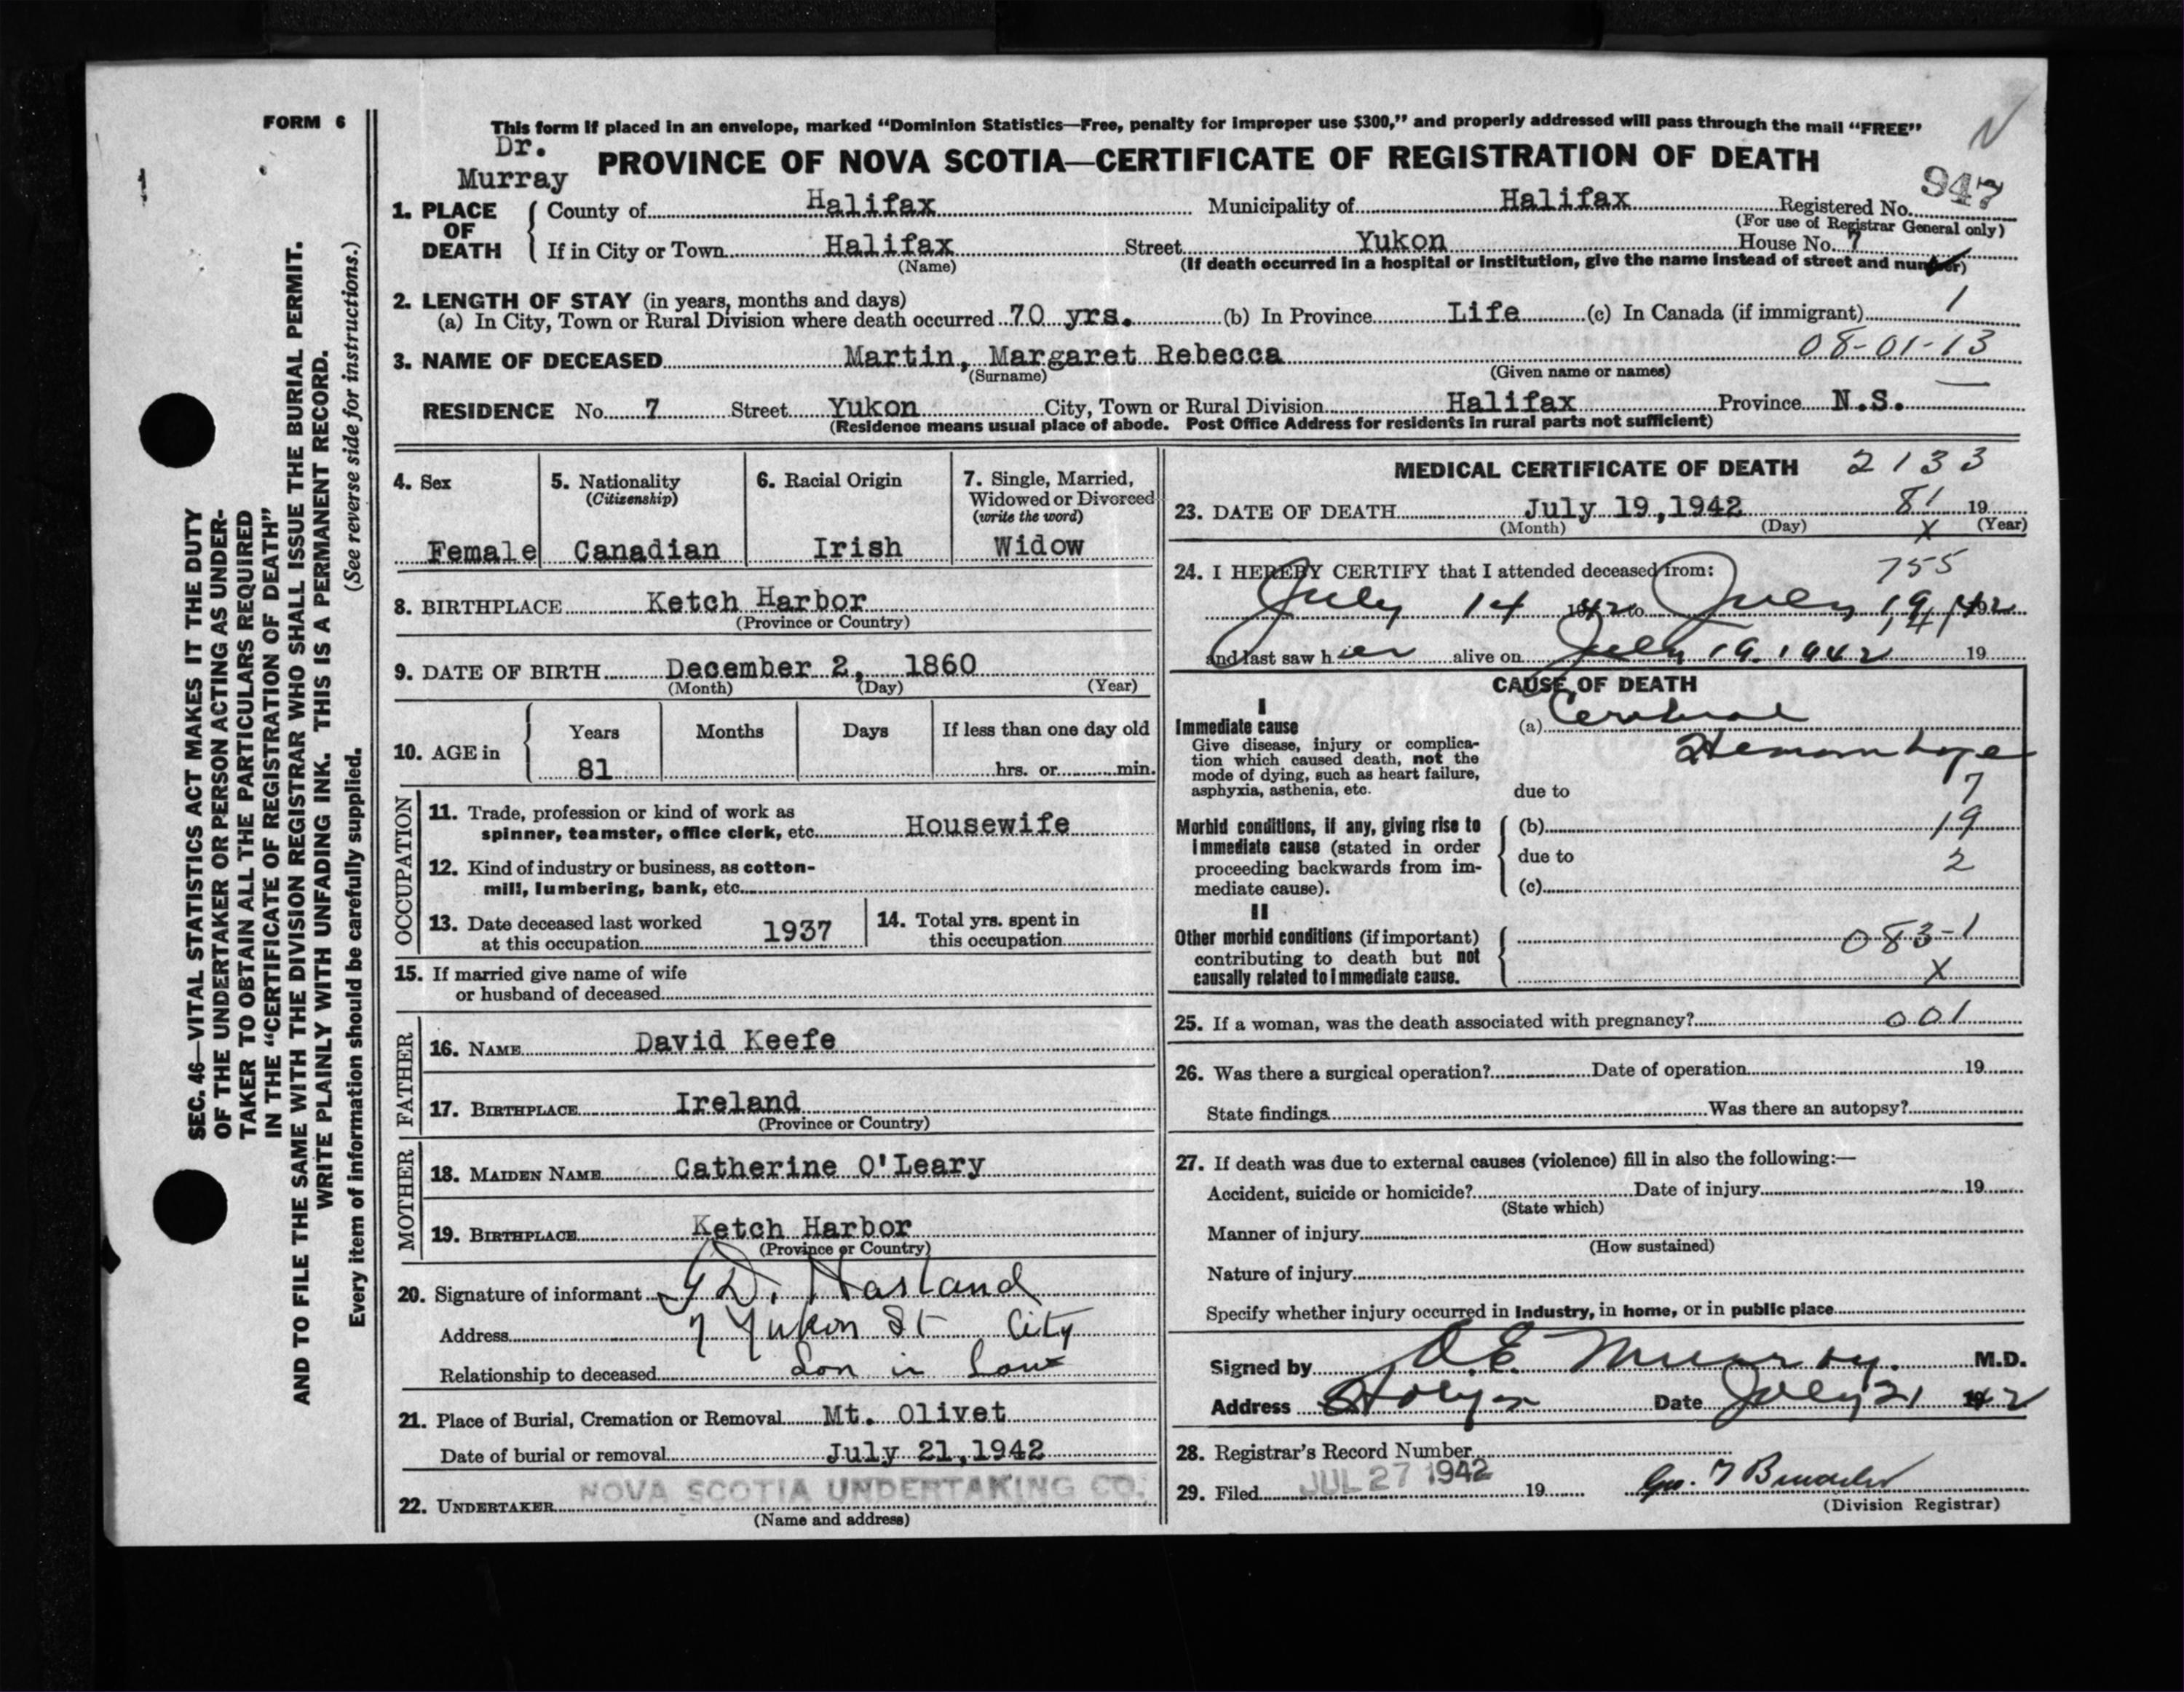 FORM 6
This form if placed in an envelope, marked “Dominion Statistics—Free, penalty for improper use $300,” and properly addressed will pass through the mail “FREE”
Dr. Murray
PROVINCE OF NOVA SCOTIA—CERTIFICATE OF REGISTRATION OF DEATH
947
1. PLACE OF DEATH
County of Halifax Municipality of Halifax Registered No.
(For use of Registrar General only)
If in City or Town Halifax Street Yukon House No. 7
(Name) (If death occurred in a hospital or institution, give the name instead of street and number)
2. LENGTH OF STAY (in years, months and days)
(a) In City, Town or Rural Division where death occurred 70 yrs. (b) In Province Life (c) In Canada (if immigrant) 1
08-01-13
3. NAME OF DECEASED Martin, Margaret Rebecca
(Surname) (Given name or names)
RESIDENCE No. 7 Street Yukon City, Town or Rural Division Halifax Province N.S.
(Residence means usual place of abode. Post Office Address for residents in rural parts not sufficient)
4. Sex
Female
5. Nationality
(Citizenship)
Canadian
6. Racial Origin
Irish
7. Single, Married,
Widowed or Divorced
(write the word)
Widow
8. BIRTHPLACE Ketch Harbor
(Province or Country)
9. DATE OF BIRTH December 2, 1860
(Month) (Day) (Year)
10. AGE in
Years Months Days If less than one day old
81 hrs. or min.
OCCUPATION
11. Trade, profession or kind of work as
spinner, teamster, office clerk, etc. Housewife
12. Kind of industry or business, as cotton-
mill, lumbering, bank, etc.
13. Date deceased last worked
at this occupation 1937
14. Total yrs. spent in
this occupation
15. If married give name of wife
or husband of deceased
FATHER
16. NAME David Keefe
17. BIRTHPLACE Ireland
(Province or Country)
MOTHER
18. MAIDEN NAME Catherine O'Leary
19. BIRTHPLACE Ketch Harbor
(Province or Country)
20. Signature of informant
Address 7 Yukon St City
Relationship to deceased Son in Law
21. Place of Burial, Cremation or Removal Mt. Olivet
Date of burial or removal July 21, 1942
22. UNDERTAKER NOVA SCOTIA UNDERTAKING CO.
(Name and address)
MEDICAL CERTIFICATE OF DEATH 2133
23. DATE OF DEATH July 19, 1942 81 19
(Month) (Day) X (Year)
24. I HEREBY CERTIFY that I attended deceased from: 755
July 14 1942 to July 19, 1942
and last saw her alive on July 19. 1942 19
CAUSE OF DEATH
I
Immediate cause
Give disease, injury or complica-
tion which caused death, not the
mode of dying, such as heart failure,
asphyxia, asthenia, etc.
(a) Cerebral
Hemorrhage
due to 7
Morbid conditions, if any, giving rise to
immediate cause (stated in order
proceeding backwards from im-
mediate cause).
(b) 19
due to 2
(c)
II
Other morbid conditions (if important)
contributing to death but not
causally related to immediate cause.
083-1
X
25. If a woman, was the death associated with pregnancy? 001
26. Was there a surgical operation? Date of operation 19
State findings Was there an autopsy?
27. If death was due to external causes (violence) fill in also the following:—
Accident, suicide or homicide? Date of injury 19
(State which)
Manner of injury
(How sustained)
Nature of injury
Specify whether injury occurred in industry, in home, or in public place
Signed by D E Murray. M.D.
Address Date July 21 1942
28. Registrar's Record Number
29. Filed JUL 27 1942 19
(Division Registrar)
SEC. 46—VITAL STATISTICS ACT MAKES IT THE DUTY
OF THE UNDERTAKER OR PERSON ACTING AS UNDER-
TAKER TO OBTAIN ALL THE PARTICULARS REQUIRED
IN THE “CERTIFICATE OF REGISTRATION OF DEATH”
AND TO FILE THE SAME WITH THE DIVISION REGISTRAR WHO SHALL ISSUE THE BURIAL PERMIT.
WRITE PLAINLY WITH UNFADING INK. THIS IS A PERMANENT RECORD.
Every item of information should be carefully supplied. (See reverse side for instructions.)